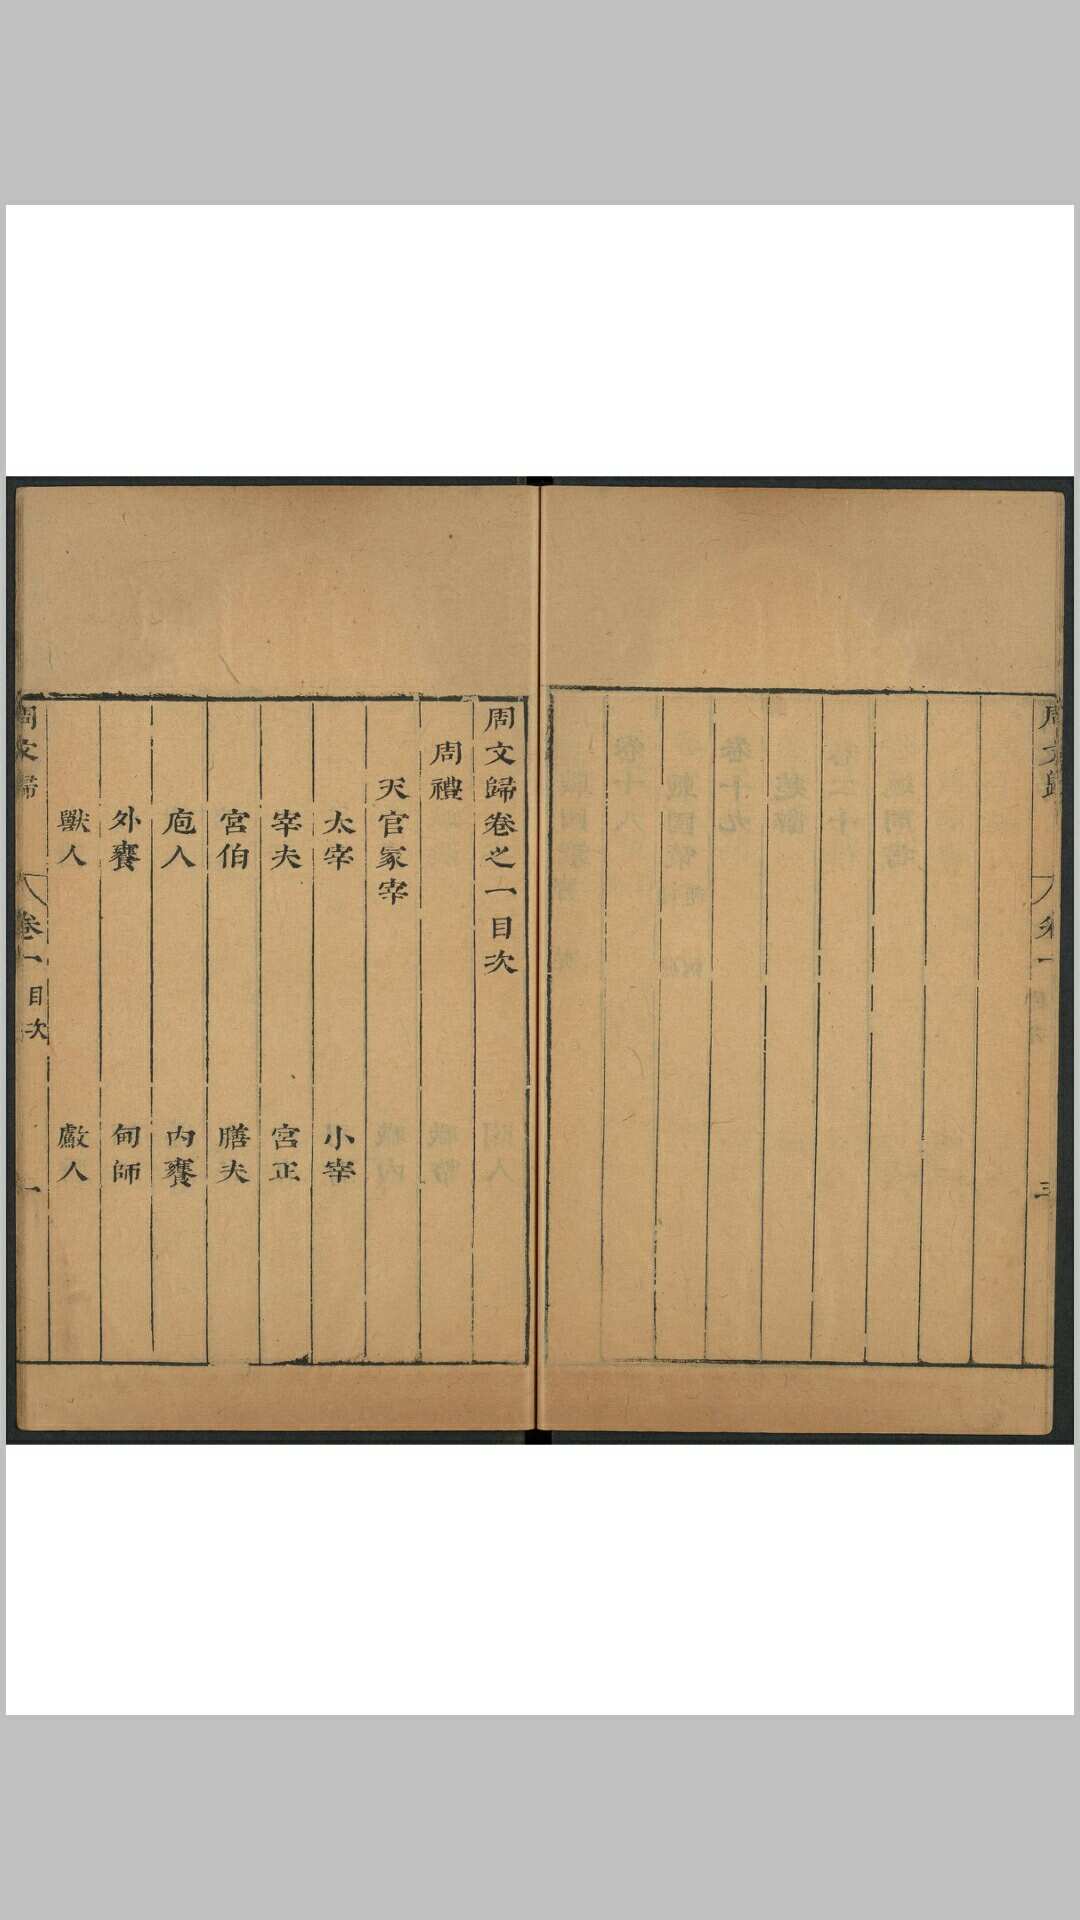 周文歸
卷一
三
周文歸卷之一目次
周禮
天官冢宰
太宰 小宰
宰夫 宮正
宮伯 膳夫
庖人 內饔
外饔 甸師
獸人 䱷人
周文歸
卷一
目次
一